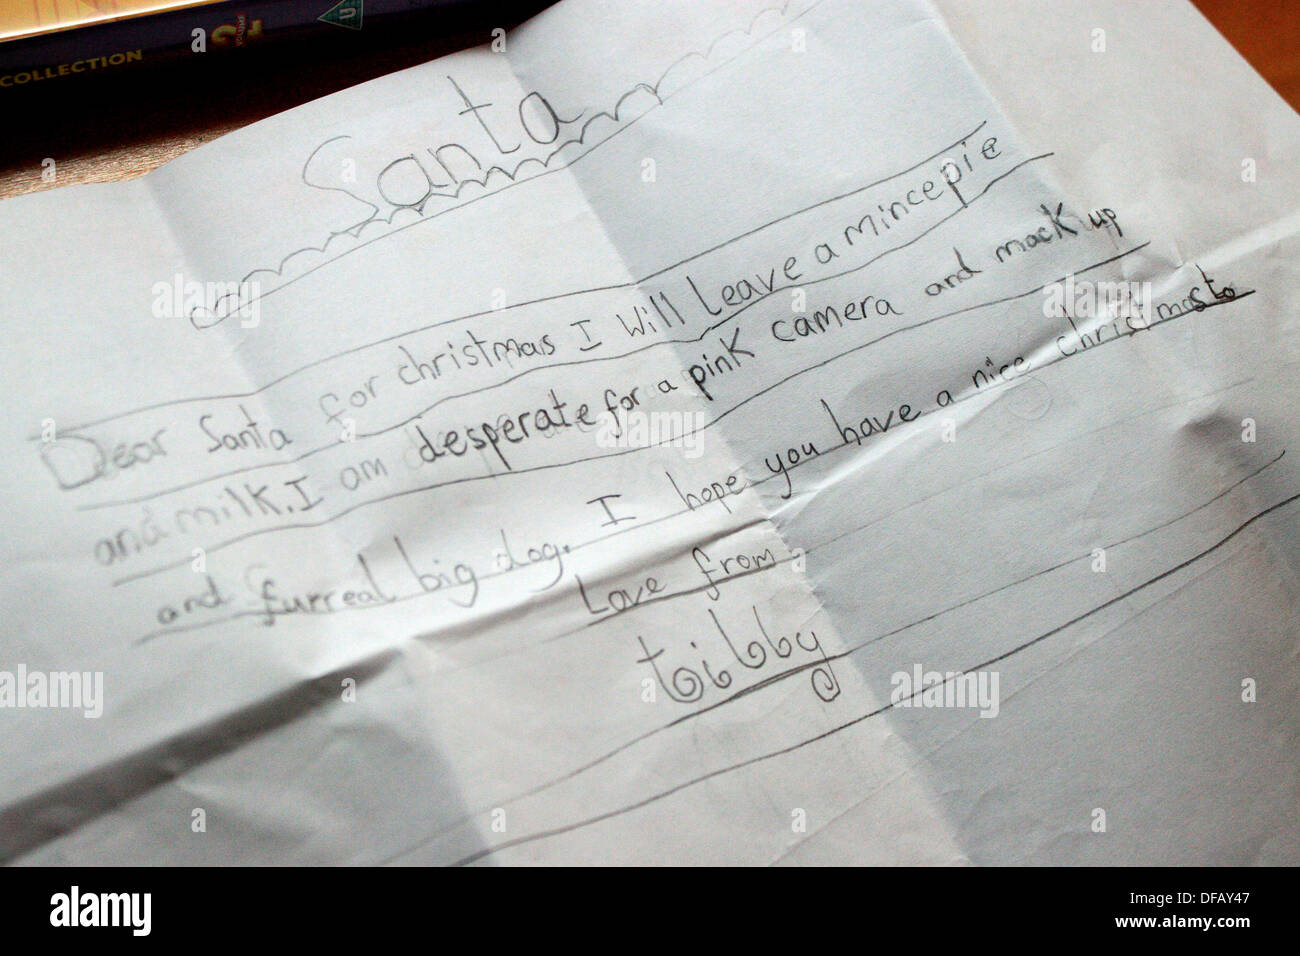 COLLECTION
Santa
Dear Santa for christmas I will leave a mince pie
and milk. I am desperate for a pink camera and mack up
and furreal big dog. I hope you have a nice christmas to
Love from
tibby
alamy
alamy
www.alamy.com
Image ID: DFAY47